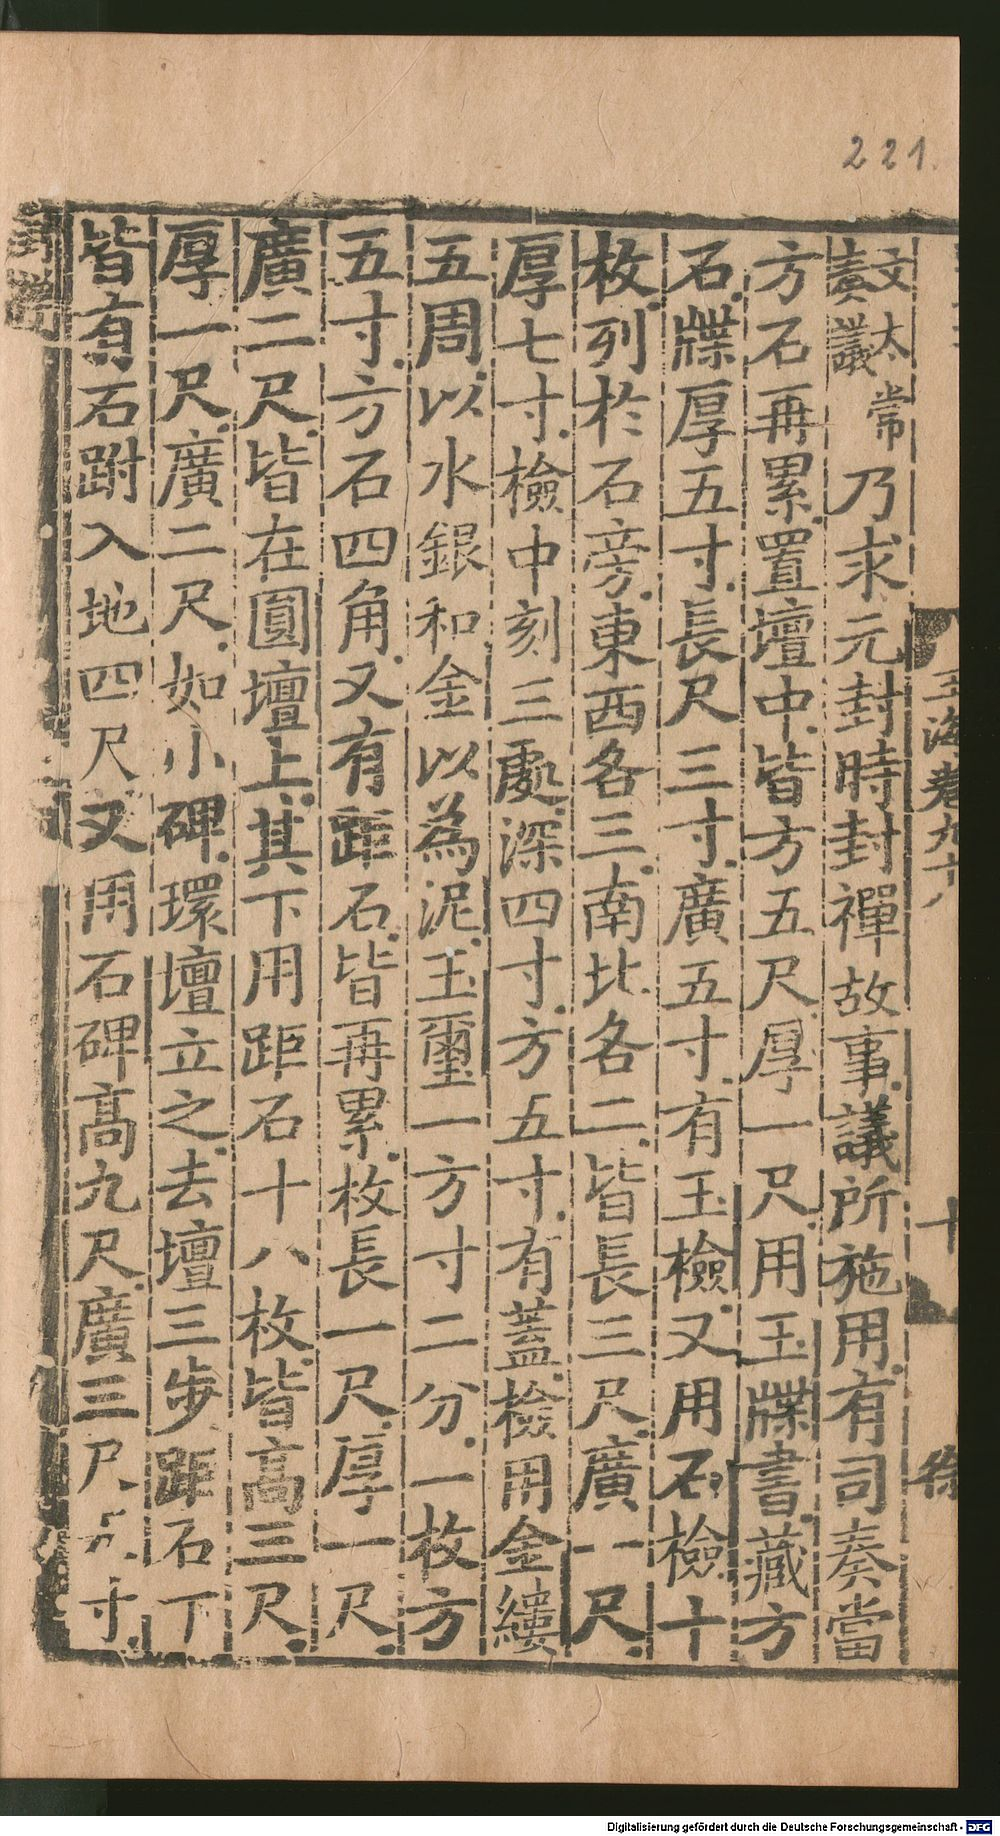 221.
玉海卷九十八
十
文太常
奏議
乃求元封時封禪故事議所施用有司奏當
方石再累置壇中皆方五尺厚一尺用玉牒書藏方
石牒厚五寸長尺三寸廣五寸有玉檢又用石檢十
枚列於石旁東西各三南北各二皆長三尺廣一尺
厚七寸檢中刻三處深四寸方五寸有蓋檢用金縷
五周以水銀和金以為泥玉璽一方寸二分一枚方
五寸方石四角又有距石皆再累枚長一尺厚一尺
廣二尺皆在圓壇上其下用距石十八枚皆高三尺
厚一尺廣二尺如小碑環壇立之去壇三步距石下
皆有石跗入地四尺又用石碑高九尺廣三尺五寸
Digitalisierung gefördert durch die Deutsche Forschungsgemeinschaft - DFG